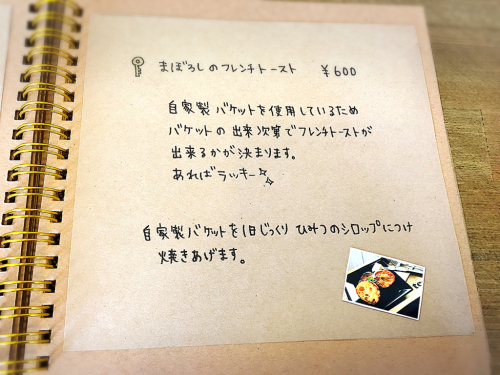 まぼろしのフレンチトースト ¥600
自家製バケットを使用しているため
バケットの出来次第でフレンチトーストが
出来るかが決まります。
あればラッキー
自家製バケットを1日じっくりひみつのシロップにつけ
焼きあげます。